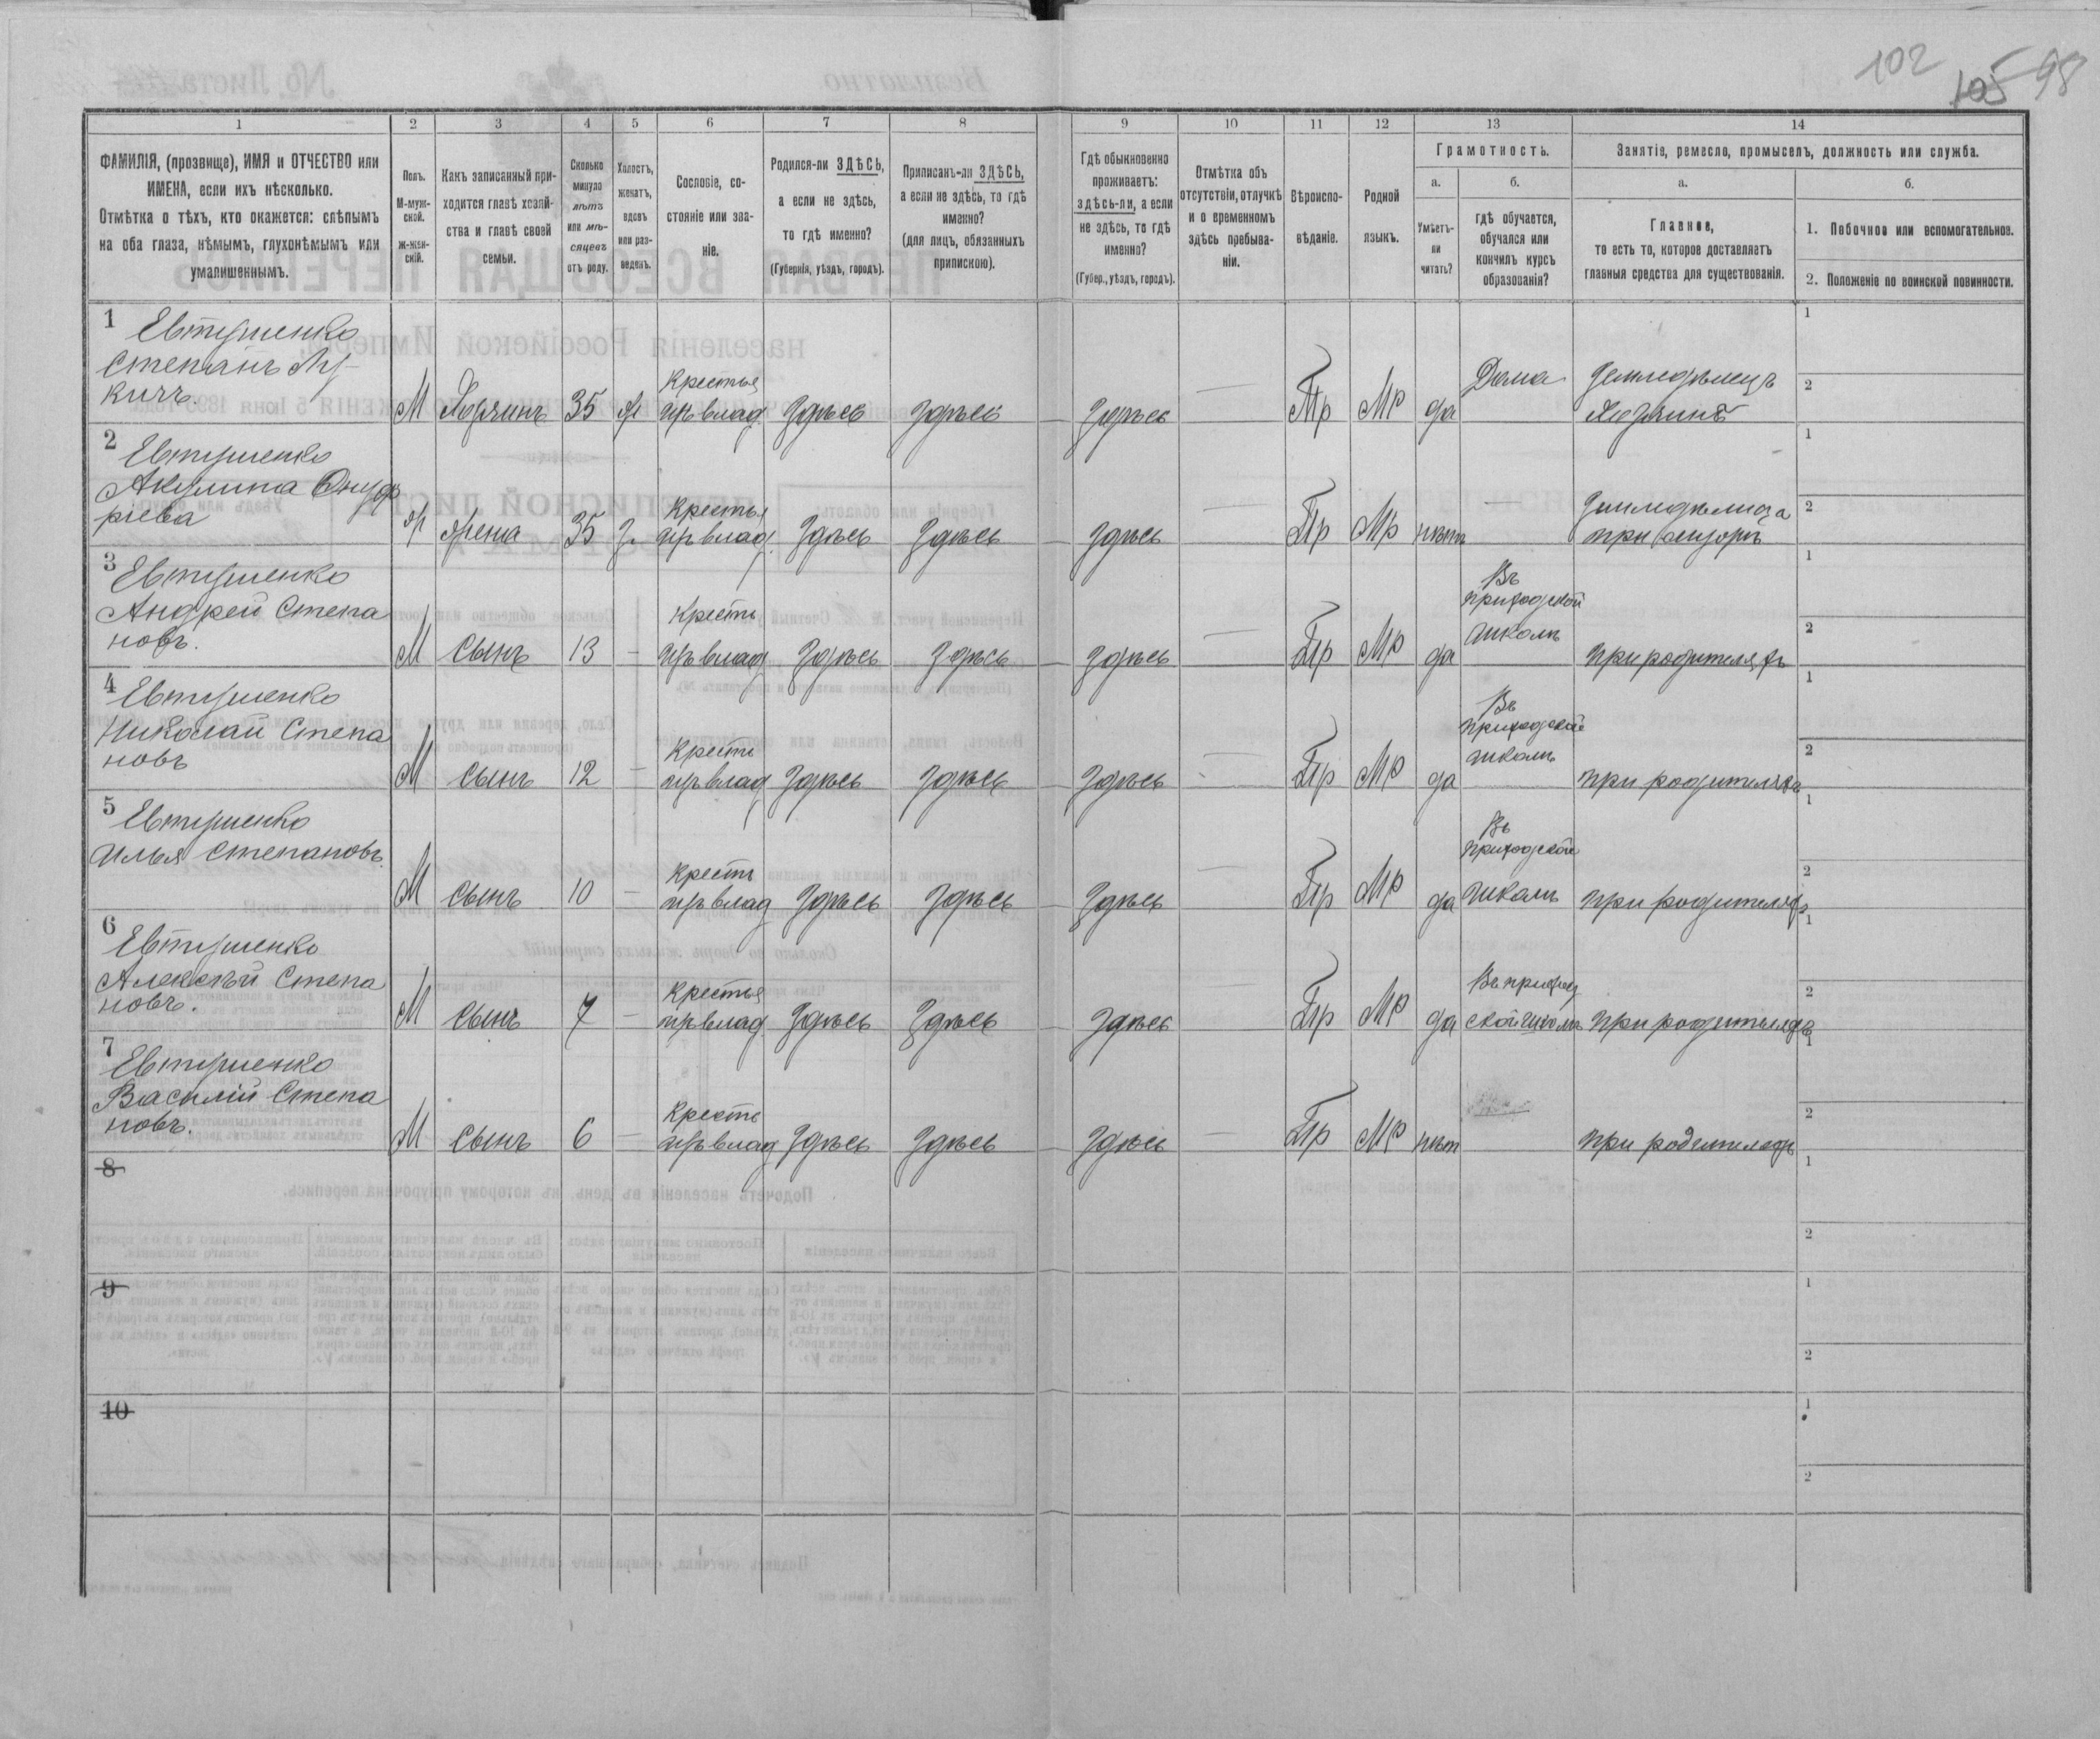 102
105 98
1 2 3 4 5 6 7 8 9 10 11 12 13 14
ФАМИЛІЯ, (прозвище), ИМЯ и ОТЧЕСТВО или
ИМЕНА, если ихъ нѣсколько.
Отмѣтка о тѣхъ, кто окажется: слѣпымъ
на оба глаза, нѣмымъ, глухонѣмымъ или
умалишеннымъ.
Полъ.
М-муж-
ской.
ж-жен-
скій.
Какъ записанный при-
ходится главѣ хозяй-
ства и главѣ своей
семьи.
Сколько
минуло
лѣтъ
или мѣ-
сяцевъ
отъ роду.
Холостъ,
женатъ,
вдовъ
или раз-
веденъ.
Сословіе, со-
стояніе или зва-
ніе.
Родился-ли ЗДѢСЬ,
а если не здѣсь,
то гдѣ именно?
(Губернія, уѣздъ, городъ).
Приписанъ-ли ЗДѢСЬ,
а если не здѣсь, то гдѣ
именно?
(для лицъ, обязанныхъ
припискою).
Гдѣ обыкновенно
проживаетъ:
здѣсь-ли, а если
не здѣсь, то гдѣ
именно?
(Губер., уѣздъ, городъ).
Отмѣтка объ
отсутствіи, отлучкѣ
и о временномъ
здѣсь пребыва-
ніи.
Вѣроиспо-
вѣданіе.
Родной
языкъ.
Грамотность.
а.
Умѣетъ-
ли
читать?
б.
гдѣ обучается,
обучался или
кончилъ курсъ
образованія?
Занятіе, ремесло, промыселъ, должность или служба.
а.
Главное,
то есть то, которое доставляетъ
главныя средства для существованія.
б.
1. Побочное или вспомогательное.
2. Положеніе по воинской повинности.
1 Евтушенко
Степанъ Лу-
кичъ. М Хозяинъ 35 ж Крестья
пръ влад Здѣсь Здѣсь Здѣсь — Пр Мр да Дома Земледѣлецъ
Хозяинъ 1 2
2 Евтушенко
Акулина Онуф
ріева ж жена 35 з. Крестья
пръ влад. Здѣсь Здѣсь Здѣсь — Пр Мр нѣтъ — Земледѣлица
при мужѣ 1 2
3 Евтушенко
Андрей Степа
новъ. М сынъ 13 — Кресть
пръ влад Здѣсь Здѣсь Здѣсь — Пр Мр да Въ
приходской
школѣ при родителяхъ 1 2
4 Евтушенко
Николай Степа
новъ М сынъ 12 — Кресть
пръ влад Здѣсь Здѣсь Здѣсь — Пр Мр да Въ
приходской
школѣ при родителяхъ 1 2
5 Евтушенко
Илья Степановъ. М сынъ 10 — Кресть
пръ влад Здѣсь Здѣсь Здѣсь — Пр Мр да Въ
приходской
школѣ при родителяхъ 1 2
6 Евтушенко
Алексѣй Степа
новъ. М сынъ 7 — Крестья
пръ влад Здѣсь Здѣсь Здѣсь Пр Мр да Въ приход
ской школѣ при родителяхъ 1 2
7 Евтушенко
Василій Степа
новъ. М сынъ 6 — Кресть
пръ влад Здѣсь Здѣсь Здѣсь — Пр Мр нѣт при родителяхъ 1 2
8 1 2
9 1 2
10 1 2